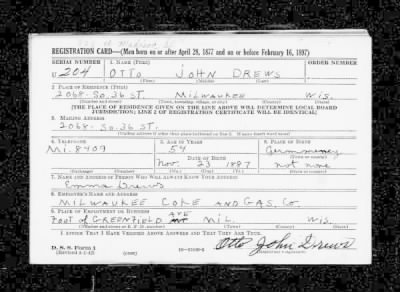 REGISTRATION CARD—(Men born on or after April 28, 1877 and on or before February 16, 1897)
SERIAL NUMBER 1. NAME (Print)
U 204 OTTO JOHN DREWS
(First) (Middle) (Last)
2. PLACE OF RESIDENCE (Print)
2068-SO. 36 ST. MILWAUKEE WIS.
(Number and street) (Town, township, village, or city) (County) (State)
[THE PLACE OF RESIDENCE GIVEN ON THE LINE ABOVE WILL DETERMINE LOCAL BOARD
JURISDICTION; LINE 2 OF REGISTRATION CERTIFICATE WILL BE IDENTICAL]
3. MAILING ADDRESS
2068-SO. 36 ST.
[Mailing address if other than place indicated on line 2. If same insert word same]
4. TELEPHONE 5. AGE IN YEARS 6. PLACE OF BIRTH
Mi. 8409 54
DATE OF BIRTH (Town or county)
Nov. 23 1887
(Exchange) (Number) (Mo.) (Day) (Yr.) (State or country)
7. NAME AND ADDRESS OF PERSON WHO WILL ALWAYS KNOW YOUR ADDRESS
Emma Drews
8. EMPLOYER'S NAME AND ADDRESS
MILWAUKEE COKE AND GAS. CO.
9. PLACE OF EMPLOYMENT OR BUSINESS
Foot of GREENFIELD AVE MIL. WIS.
(Number and street or R. F. D. number) (Town) (County) (State)
I AFFIRM THAT I HAVE VERIFIED ABOVE ANSWERS AND THAT THEY ARE TRUE.
D. S. S. Form 1
(Revised 4-1-42) (over) Otto John Drews